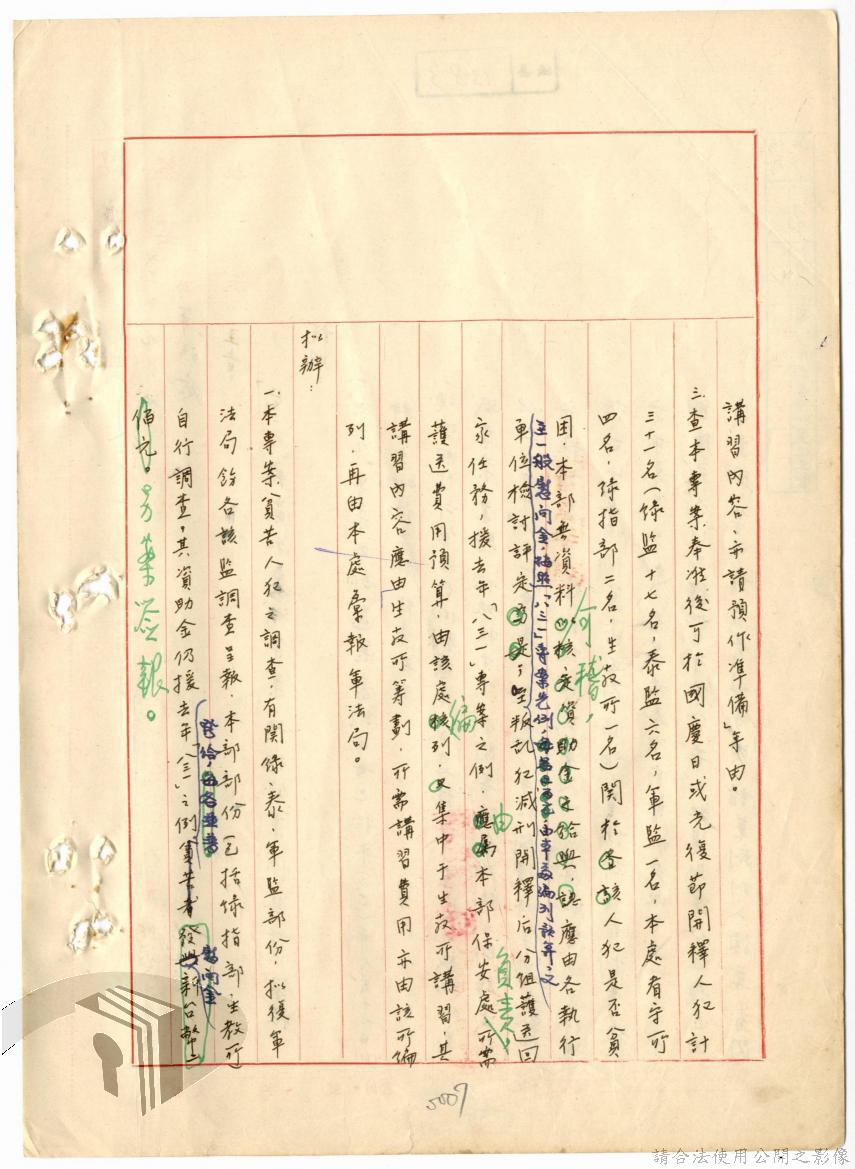 講習內容,亦請預作準備」等由。
三、查本專案奉准後可於國慶日或光復節開釋人犯計
三十一名(綠監十七名,泰監六名,軍監一名,本處看守所
四名,綠指部二名,生教所一名)關於查該人犯是否貧
困,本部無資料 核定資助金之給與,認應由各執行
可稽,
至一般慰問金,
「八三一」專案先例,
單位檢討評定為是,
叛亂犯減刑開釋后分組護送回
家任務,援去年「八三一」專案之例,應屬本部保安處 所需
由
負責,
護送費用預算,由該處 列,又集中于生教所講習,其
編
講習內容應由生教所籌劃,所需講習費用亦由該所編
列,再由本處彙報軍法局。
擬辦:
一、本專案貧苦人犯之調查,有關綠、泰、軍監部份,擬復軍
法局飭各該監調查呈報,本部部份(包括綠指部、生教所)
自行調查,其資助金仍援去年「八三一」之例貧苦者發與新台幣二
慰問金
佰元。另案簽報。
5007
請合法使用公開之影像